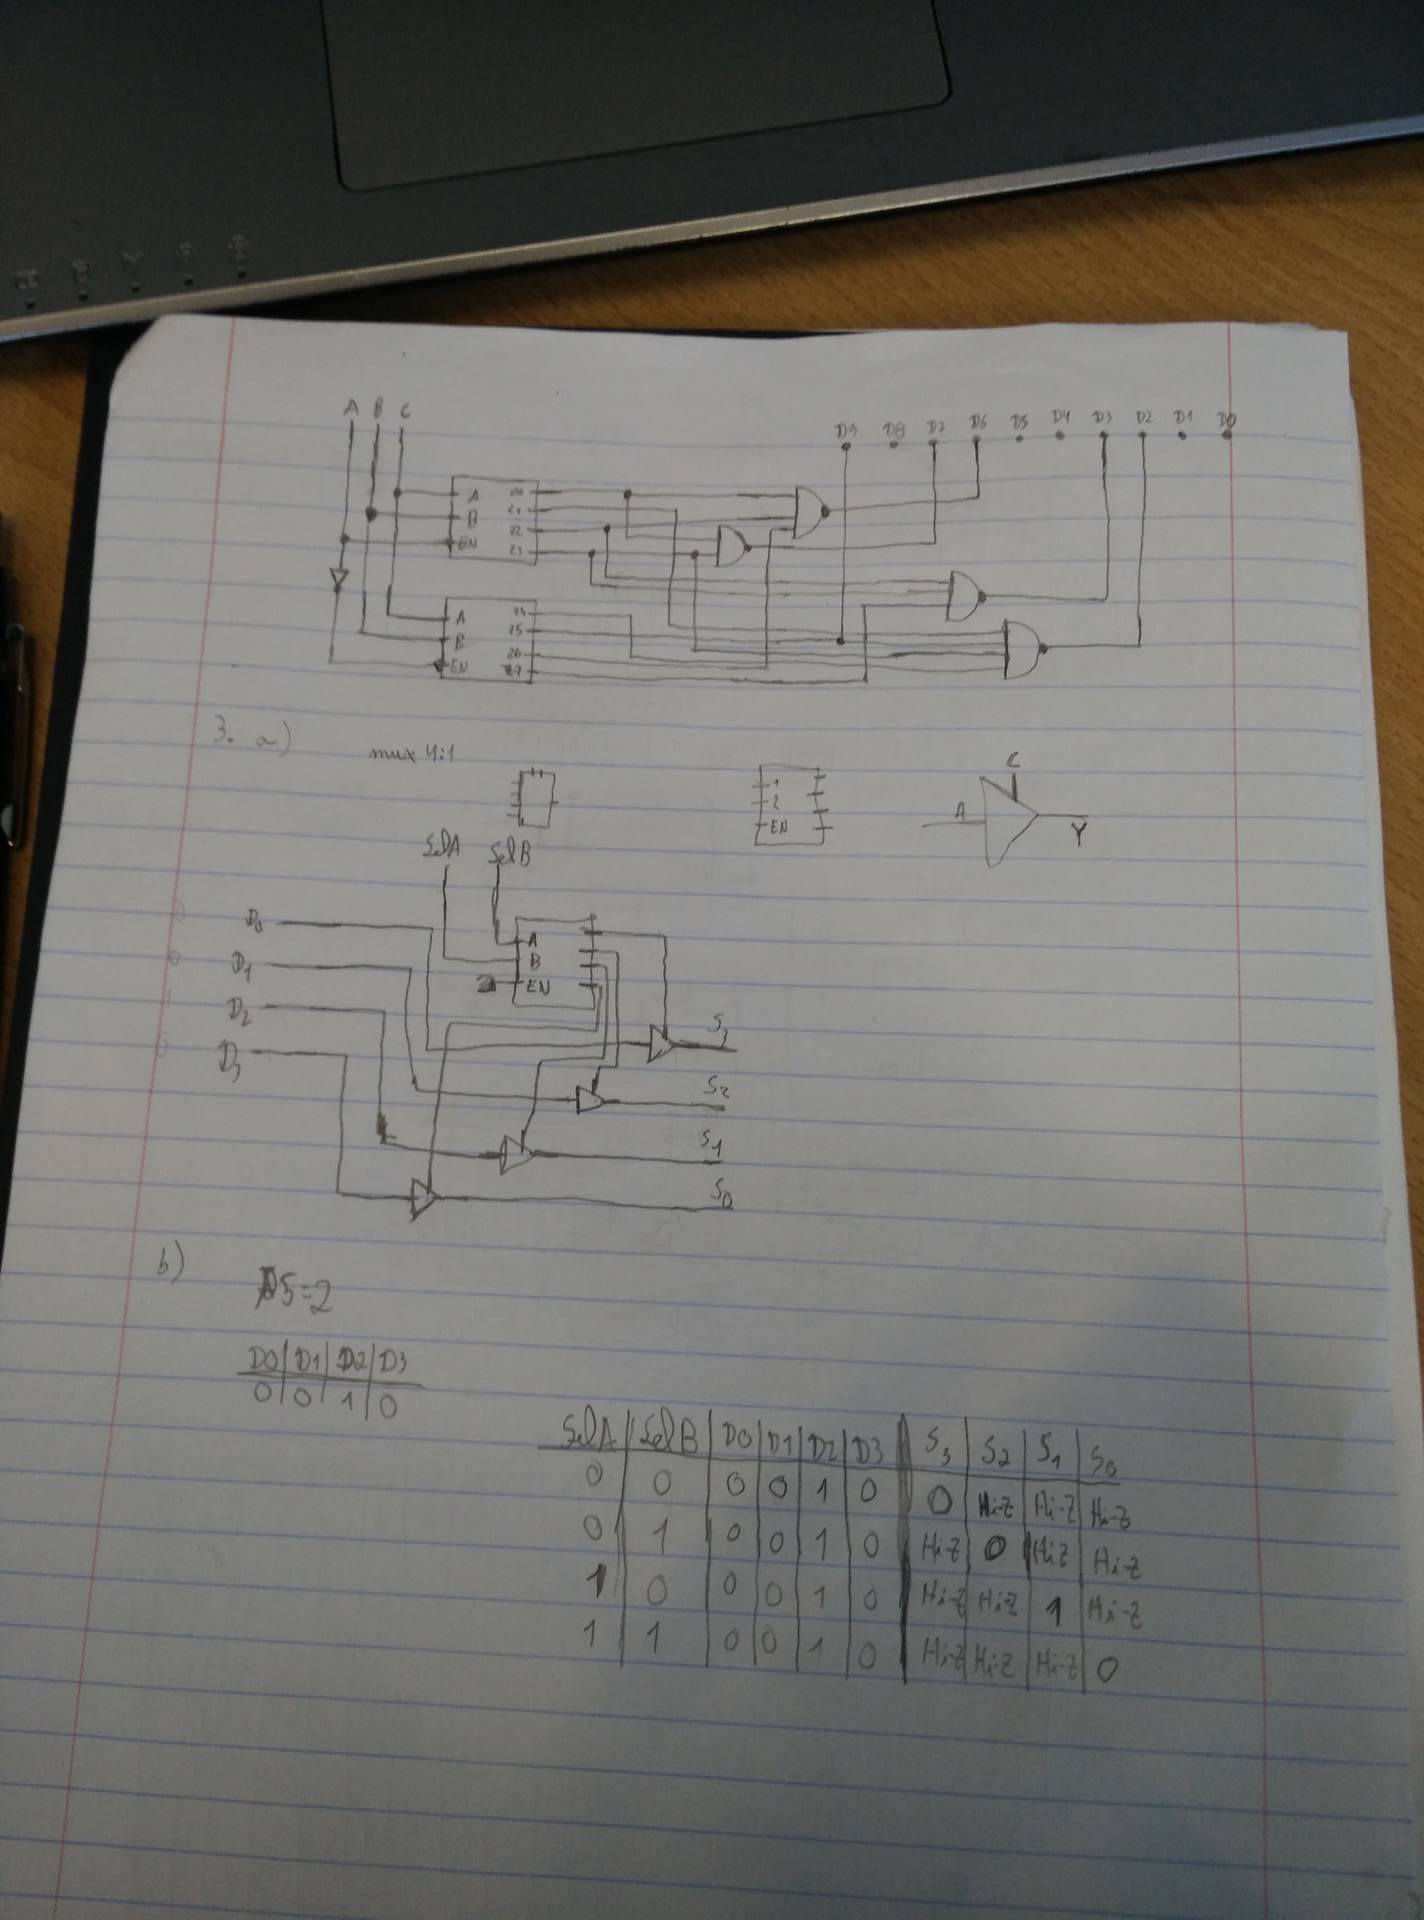 A B C
D9 D8 D7 D6 D5 D4 D3 D2 D1 D0
A 20
B 21
EN 22
23
A 24
B 25
EN 26
27
3. a) mux 4:1
1
2
EN
C
A
Y
SelA SelB
D0
D1
D2
D3
A
B
EN
S3
S2
S1
S0
b)
S=2
D0 D1 D2 D3
0 0 1 0
SelA SelB D0 D1 D2 D3 S3 S2 S1 S0
0 0 0 0 1 0 0 Hi-Z Hi-Z Hi-Z
0 1 0 0 1 0 Hi-Z 0 Hi-Z Hi-Z
1 0 0 0 1 0 Hi-Z Hi-Z 1 Hi-Z
1 1 0 0 1 0 Hi-Z Hi-Z Hi-Z 0